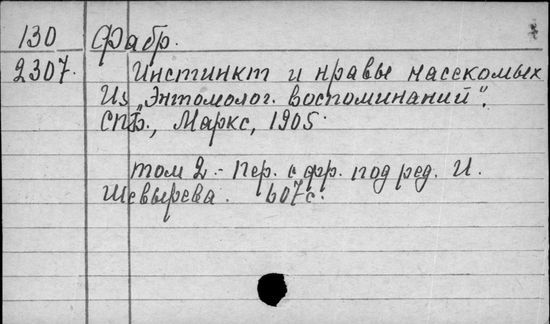 130 Фабр.
2307. Инстинкт и нравы насекомых
Из „Энтомолог. воспоминаний".
СПБ., Маркс, 1905.
том 2.- Пер. с фр. под ред. И.
Шевырева. 607с.